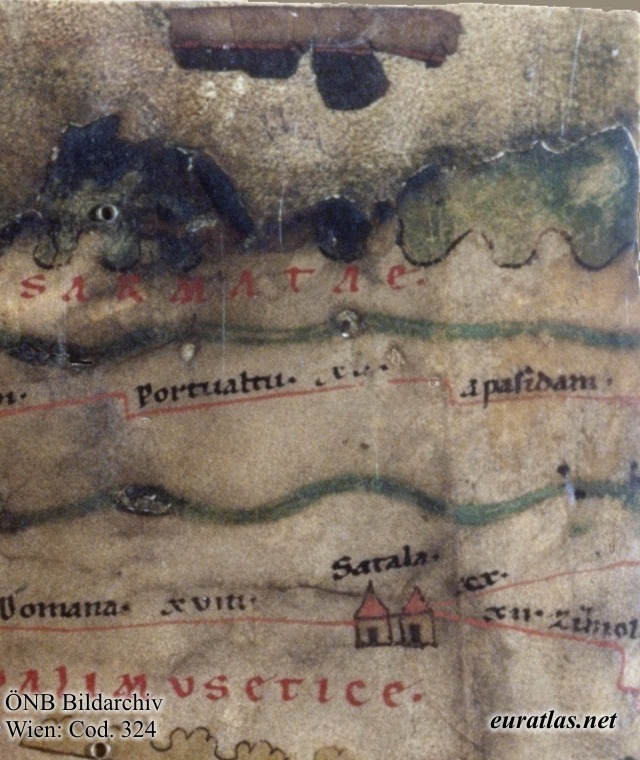 SARMATAE.
Portualtu. xv.
Apasidam.
Satala.
xx.
Domana. xviii.
xii.
PALIMUSETICE.
ÖNB Bildarchiv
Wien: Cod. 324
euratlas.net